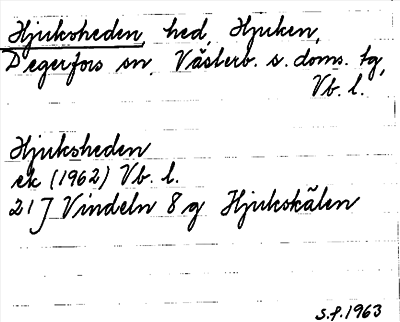 Hjuksheden, hed, Hjuken,
Degerfors sn, Västerb. s. doms. tg,
Vb. l.
Hjuksheden
ek (1962) Vb. l.
21J Vindeln 8 g Hjukskälen
s.f. 1963